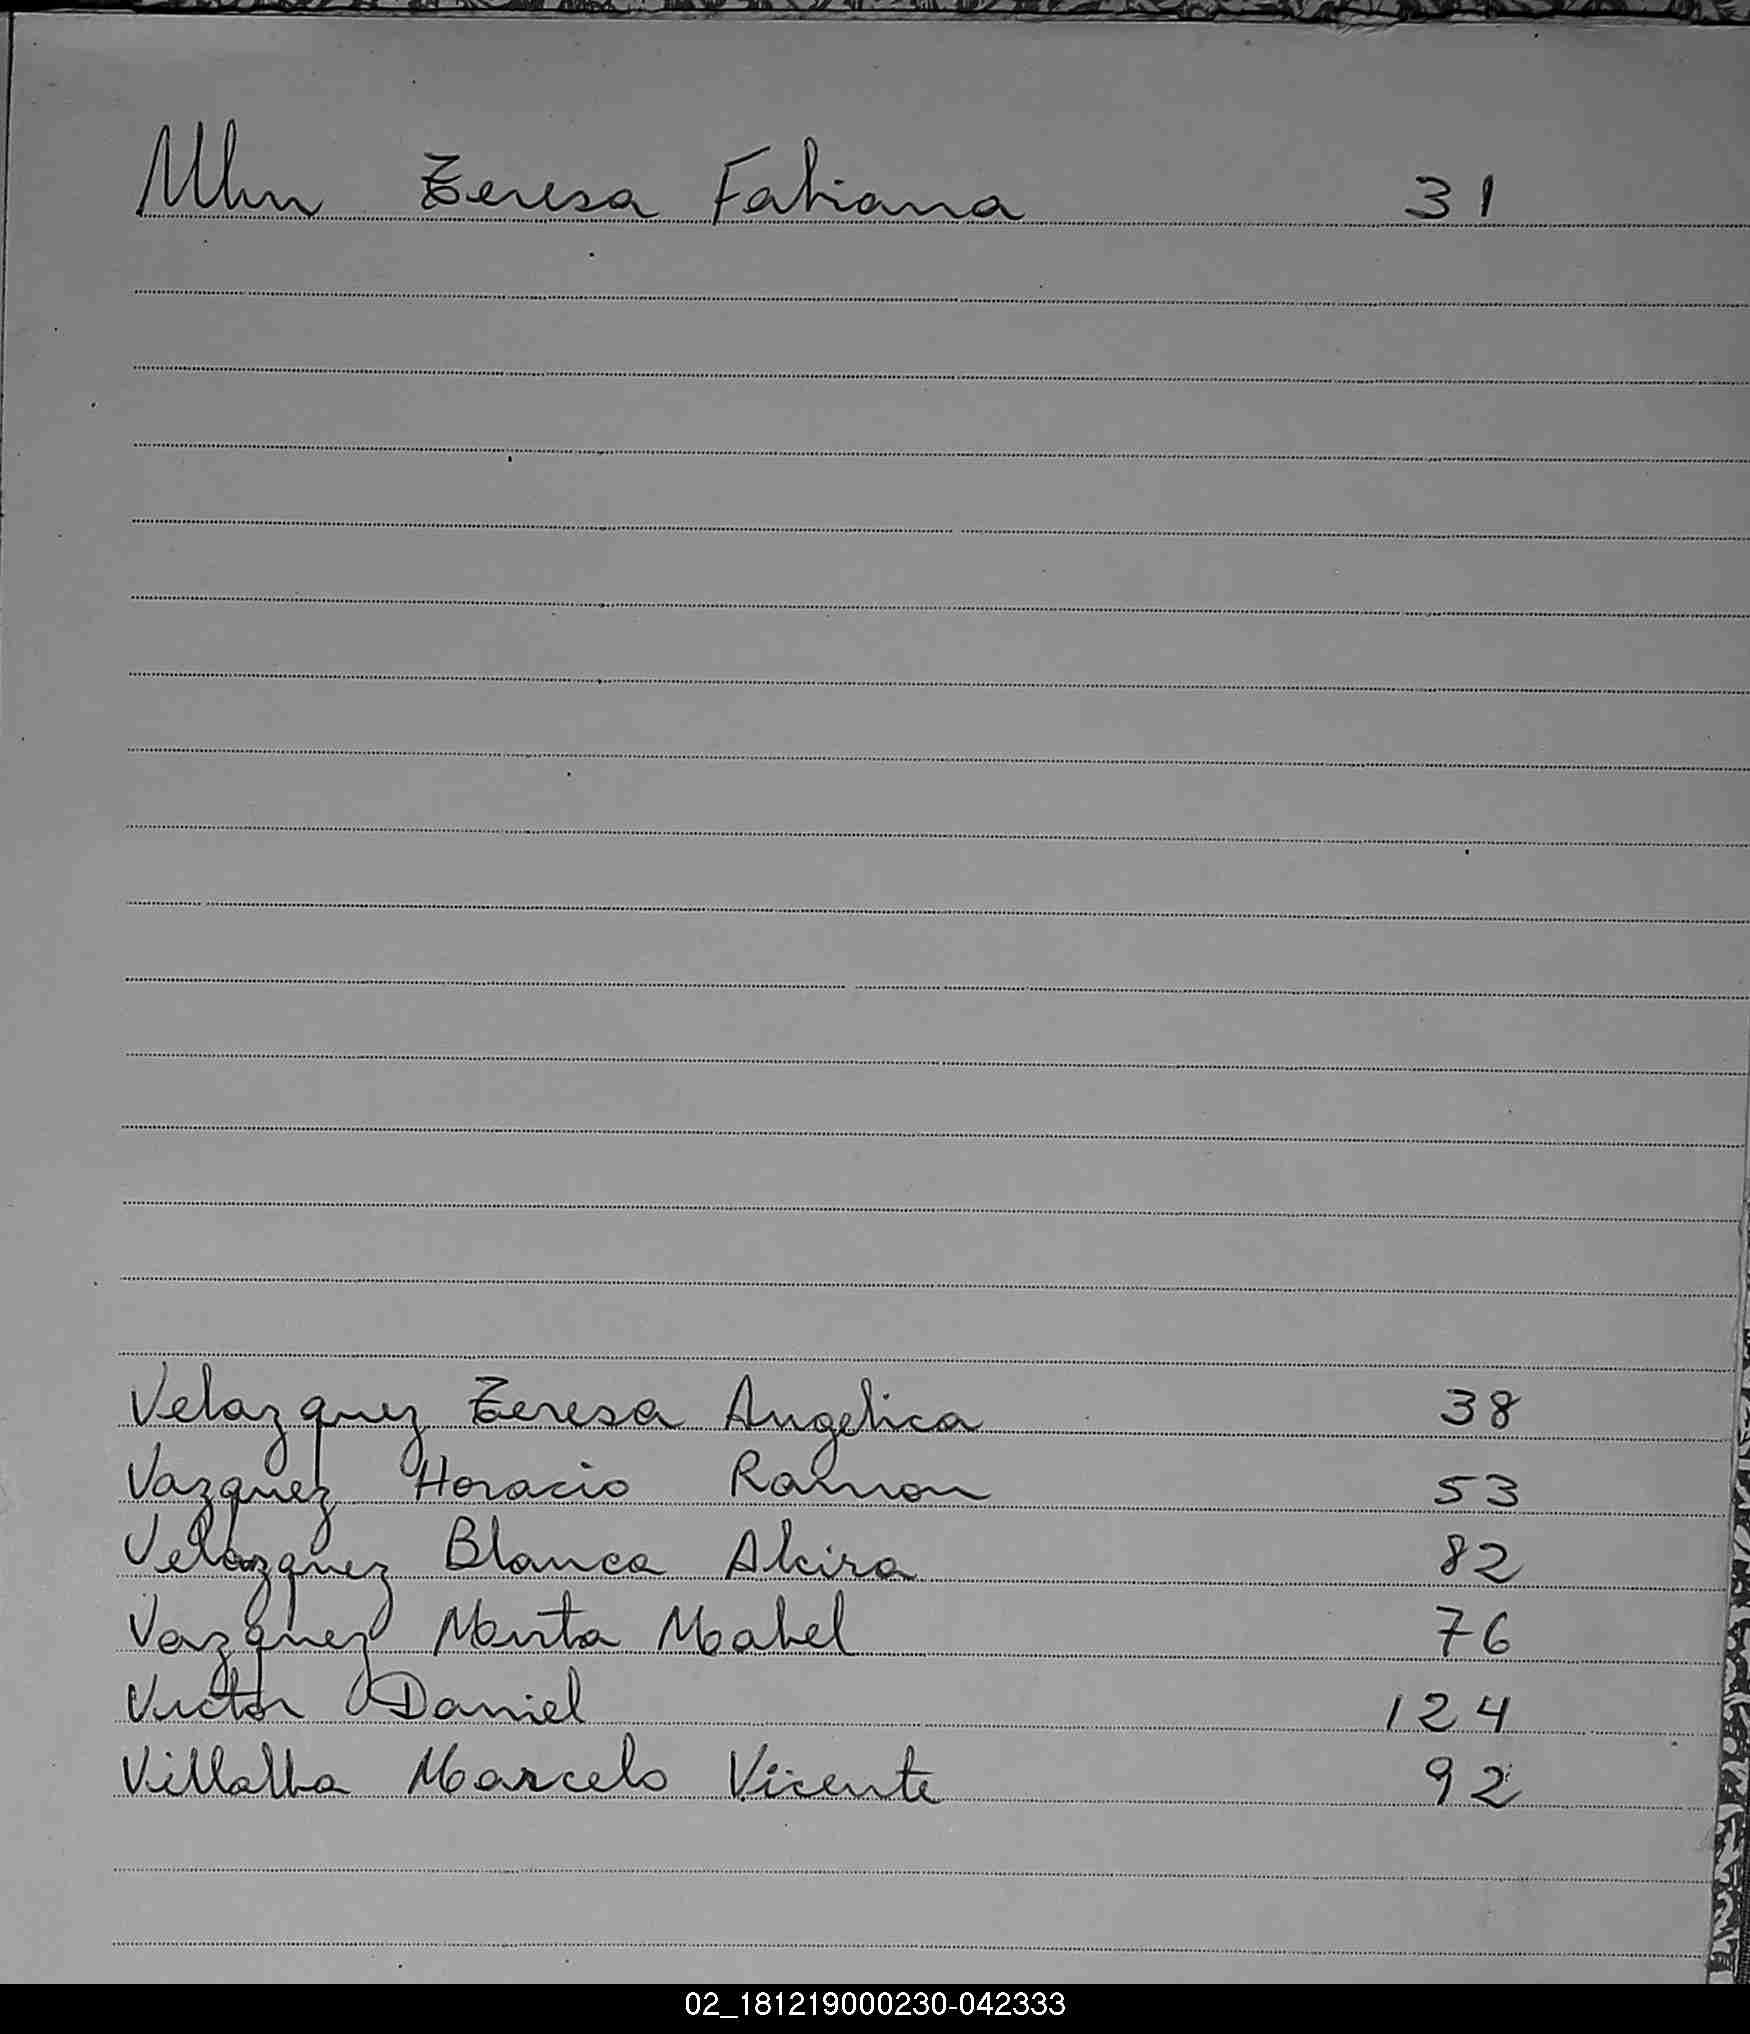 Teresa Fabiana 31
Velazquez Teresa Angelica 38
Vazquez Horacio Ramon 53
Velazquez Blanca Alcira 82
Vazquez Mirta Mabel 76
Victor Daniel 124
Villalba Marcelo Vicente 92
02_181219000230-042333